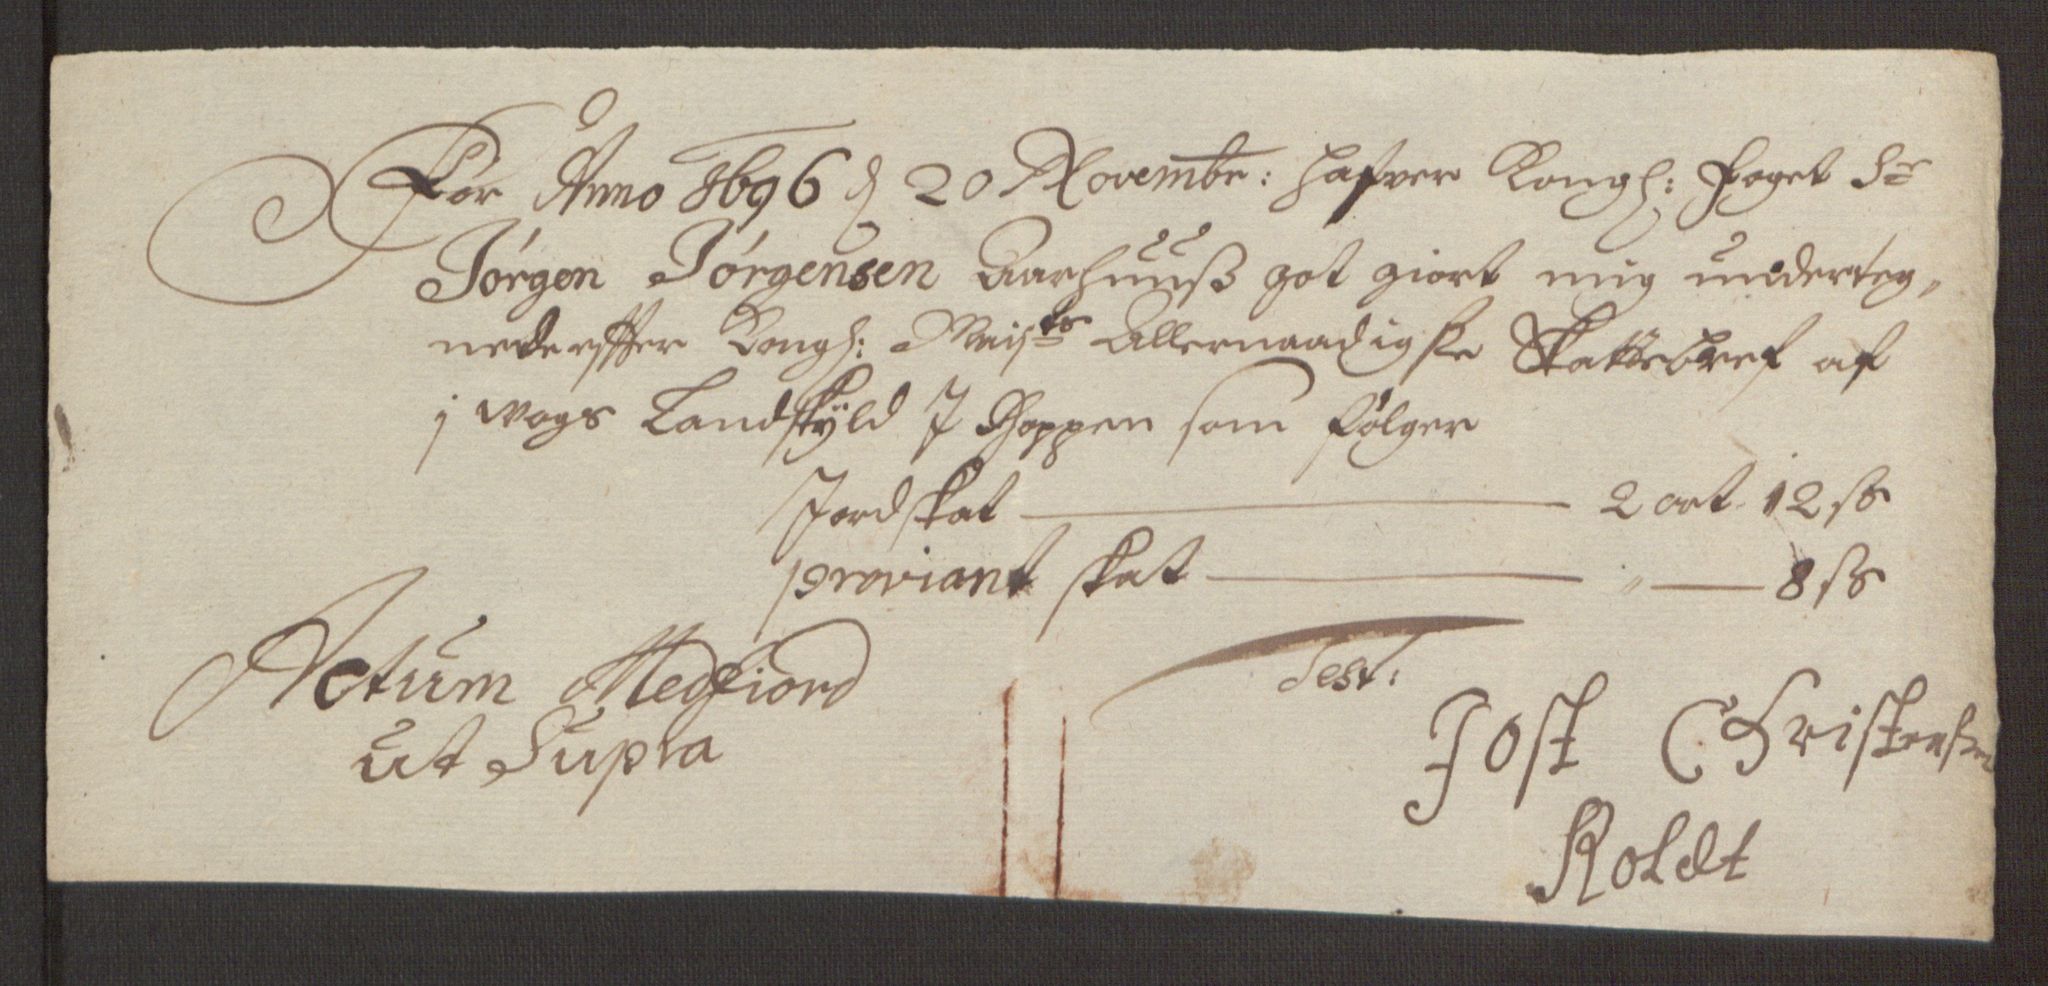 For Anno 1696 d 20 Novembr: hafver Kongl: foget Sr
Jörgen Jörgensen Aarhuuß got giort mig underteg„
nede efter Kongl: Mayts Allernaadigste Skattebref af
j wogs Landskÿld J Hoppen som følger
Jord skat 2 ort 12 ss
proviant skat „ 8 ss
Actum Medfiord
ut Supra
Test:
Jost Christensen
Roldt